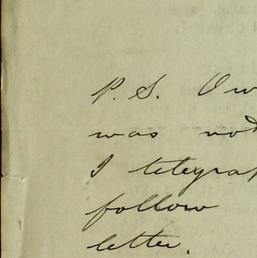 P. S. Ow
was not
I telegrap
follow
letter.